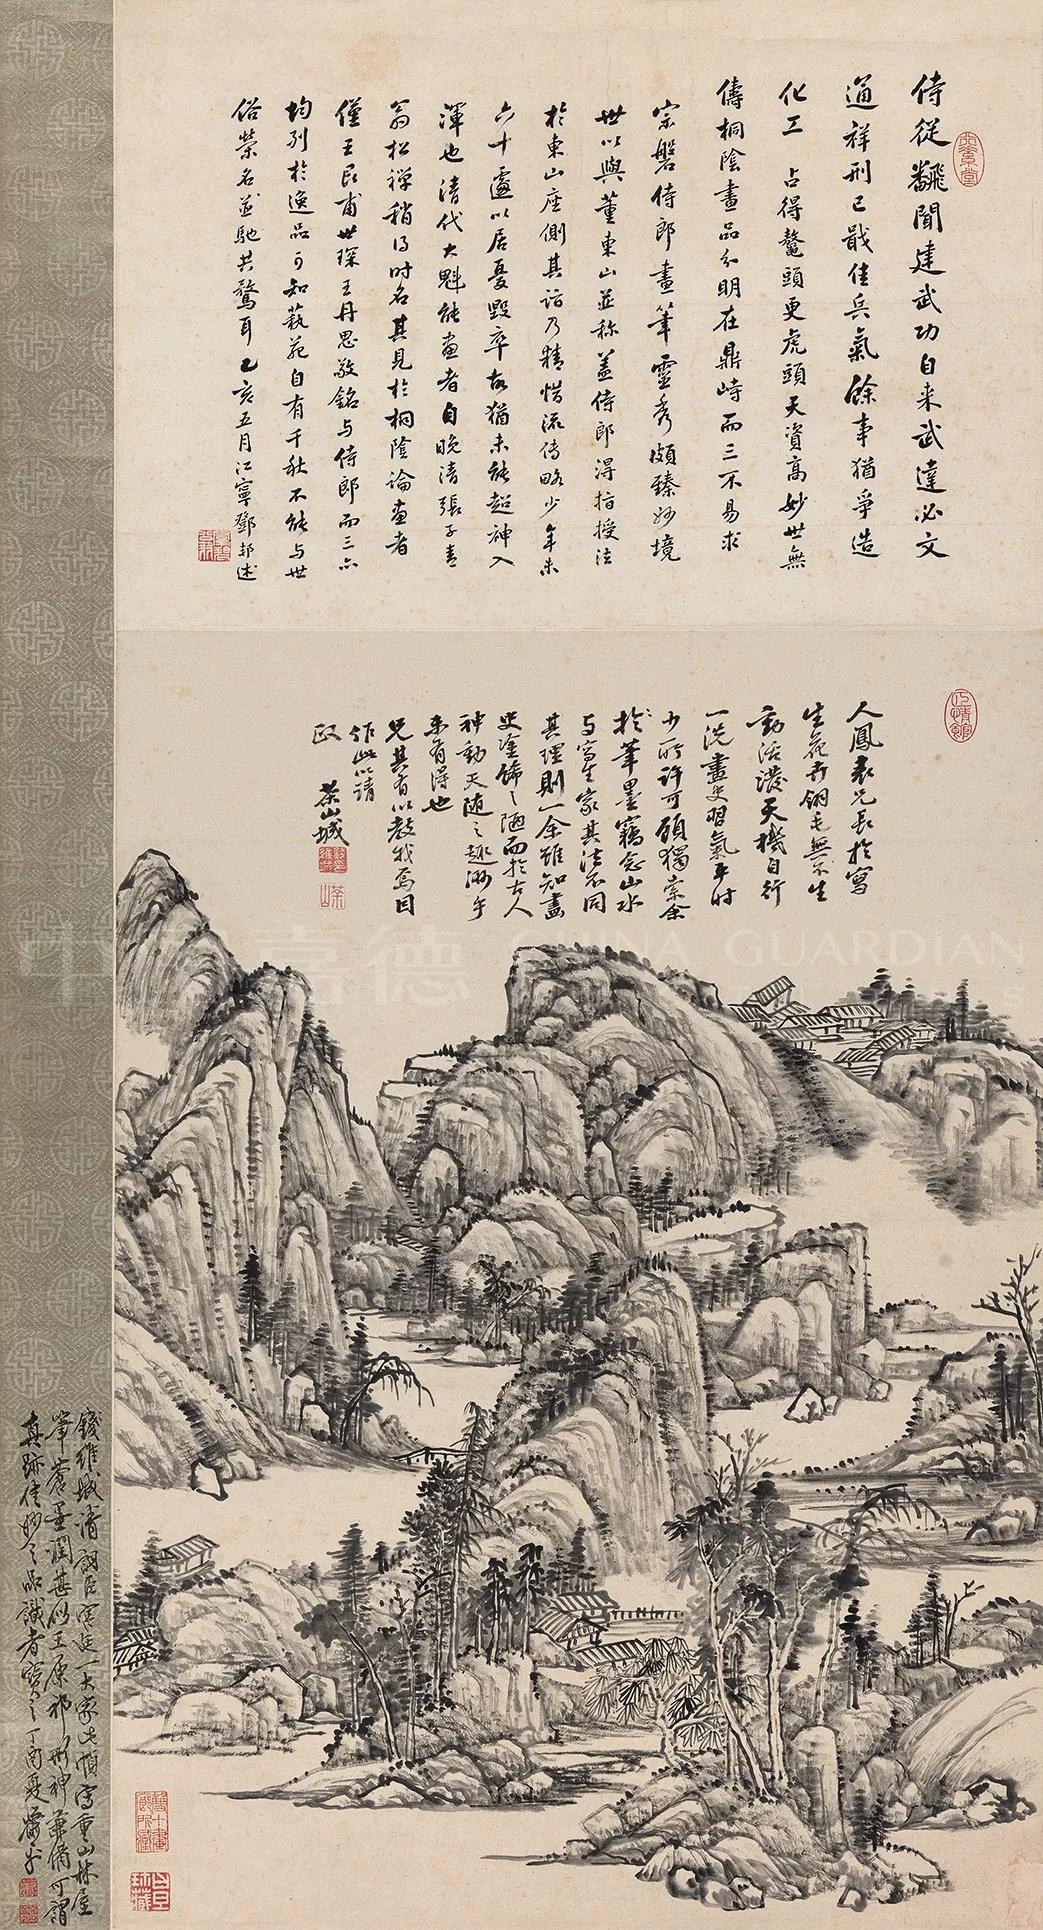 侍從翻聞建武功自來武達必文
通祥刑已戢佳兵氣餘事猶爭造
化工 占得鼇頭更虎頭天資高妙世無
儔桐陰畫品分明在鼎峙而三不易求
宗磐侍郎畫筆靈秀頗臻妙境
世以與董東山並称蓋侍郎得指授法
於東山座側其詣乃精惜流傳略少年未
六十遽以居憂毀卒故猶未能超神入
渾也清代大魁能畫者自晚清張子青
翁松禪稍得時名其見於桐陰論畫者
僅王艮甫世琛王丹思敬銘与侍郎而三亦
均列於逸品可知藝苑自有千秋不能与世
俗榮名並馳共騖耳乙亥五月江寧鄧邦述
人鳳表兄長於寫
生花卉翎毛無不生
動活潑天機自行
一洗畫史習氣平时
少所許可顧獨索余
於筆墨竊念山水
与寫生家其法不同
其理則一余雖知畫
史塗飾之陋而於古人
神動天随之趣渺乎
未有得也
兄其有以教我焉因
作此以請
政 茶山城
錢維城清詞臣宮廷一大家此幀寫重山林屋
筆蒼墨潤甚似王原祁形神兼備可謂
真跡佳妙之品識者寶之丁酉夏
中国嘉德 CHINA GUARDIAN